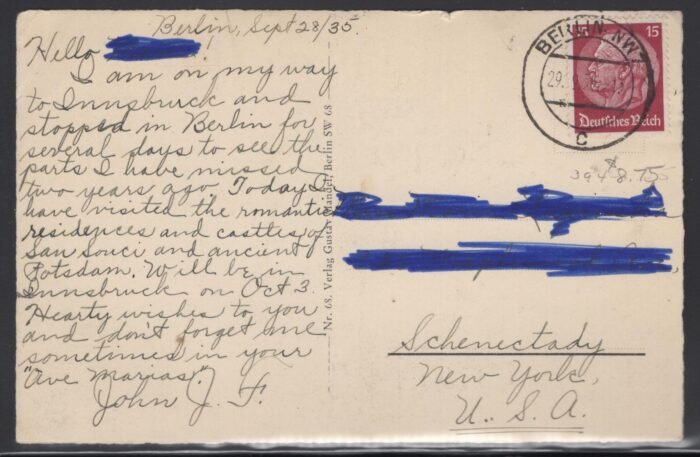 Berlin, Sept 28/35.
Hello !
I am on my way
to Innsbruck and
stopped in Berlin for
several days to see the
parts I have missed
two years ago. Today I
have visited the romantic
residences and castles of
San Souci and ancient
Potsdam. Will be in
Innsbruck on Oct 3.
Hearty wishes to you
and don't forget me
sometimes in your
"Ave Marias".
John J. F.
Nr. 68. Verlag Gustav Mandel, Berlin SW 68
BERLIN NW 7
29.
C
15 15
Deutsches Reich
394 $8.75
Schenectady
New York,
U. S. A.